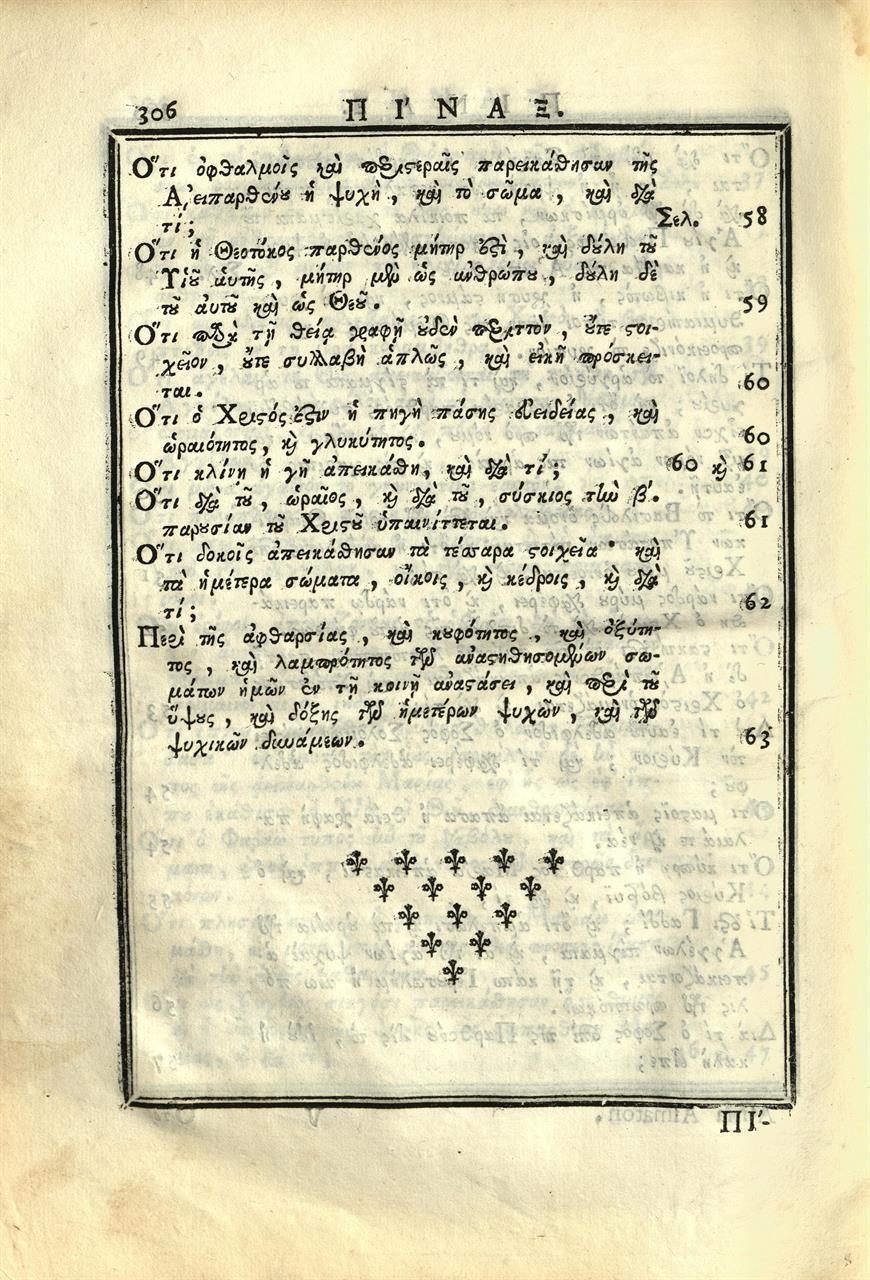 306 ΠΙ'ΝΑΞ.
Ὅτι ὀφθαλμοῖς καὶ περιστεραῖς παρεικάθησαν τῆς
Ἀειπαρθένου ἡ ψυχὴ, καὶ τὸ σῶμα, καὶ διὰ
τί; Σελ. 58
Ὅτι ἡ Θεοτόκος παρθένος μήτηρ ἐστὶ, καὶ δούλη τοῦ
Υἱοῦ αὑτῆς, μήτηρ μὲν ὡς ἀνθρώπου, δούλη δὲ
τοῦ αὐτοῦ καὶ ὡς Θεοῦ. 59
Ὅτι παρὰ τῇ θείᾳ γραφῇ οὐδὲν περιττὸν, οὔτε στοι-
χεῖον, οὔτε συλλαβὴ ἁπλῶς, καὶ εἰκῆ πρόσκει-
ται. 60
Ὅτι ὁ Χριστός ἐστιν ἡ πηγὴ πάσης εὐειδείας, καὶ
ὡραιότητος, κὶ γλυκύτητος. 60
Ὅτι κλίνη ἡ γῆ ἀπεικάθη, καὶ διὰ τί; 60 κὶ 61
Ὅτι διὰ τοῦ, ὡραῖος, κὶ διὰ τοῦ, σύσκιος τὴν β΄.
παρουσίαν τοῦ Χριστοῦ ὑπαινίττεται. 61
Ὅτι δοκοῖς ἀπεικάθησαν τὰ τέσσαρα στοιχεῖα· καὶ
τὰ ἡμέτερα σώματα, οἴκοις, κὶ κέδροις, κὶ διὰ
τί; 62
Περὶ τῆς ἀφθαρσίας, καὶ κουφότητος, καὶ ὀξύτη-
τος, καὶ λαμπρότητος τῶν ἀναστηθησομένων σω-
μάτων ἡμῶν ἐν τῇ κοινῇ ἀναστάσει, καὶ περὶ τοῦ
ὕψους, καὶ δόξης τῶν ἡμετέρων ψυχῶν, καὶ τῶν
ψυχικῶν δυνάμεων. 63
ΠΙ'-